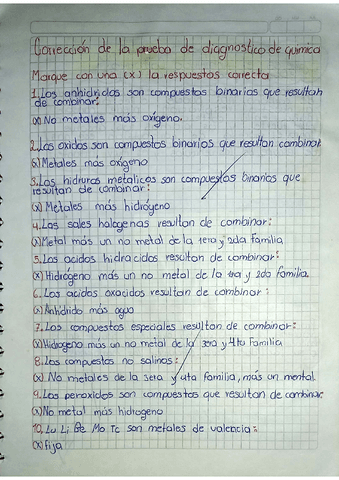 Corrección de la prueba de diagnostico de quimica
Marque con una (x) la respuestas correcta
1. Los anhidridos son compuestos binarios que resultan
de combinar:
(x) No metales más oxigeno.
2. Los oxidos son compuestos binarios que resultan combinar
(x) Metales mas oxigeno
3. Los hidruros metalicos son compuestos binarios que
resultan de combinar:
(x) Metales más hidrógeno
4. Las sales halogenas resultan de combinar:
(x) Metal más un no metal de la 1era y 2da familia
5. Los acidos hidracidos resultan de combinar:
(x) Hidrógeno más un no metal de la 1ra y 2da familia.
6. Los acidos oxacidos resultan de combinar:
(x) Anhidrido más agua
7. Los compuestos especiales resultan de combinar:
(x) Hidrogeno más un no metal de la 3era y 4ta familia
8. Los compuestos no salinos:
(x) No metales de la 3era y 4ta familia, más un mental
9. Los peroxidos son compuestos que resultan de combinar
(x) No metal más hidrogeno
10. Lu Li Be Mo Tc son metales de valencia:
(x) fija